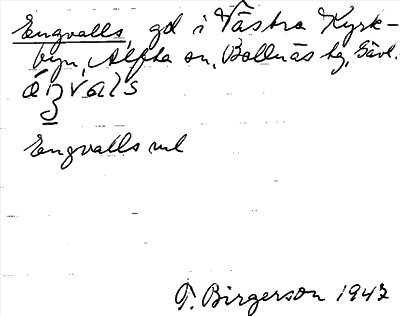 Engvalls, gd i Västra Kyrk-
byn, Alfta sn, Bollnäs tg, Gävl.
Engvalls ml
T. Birgerson 1942